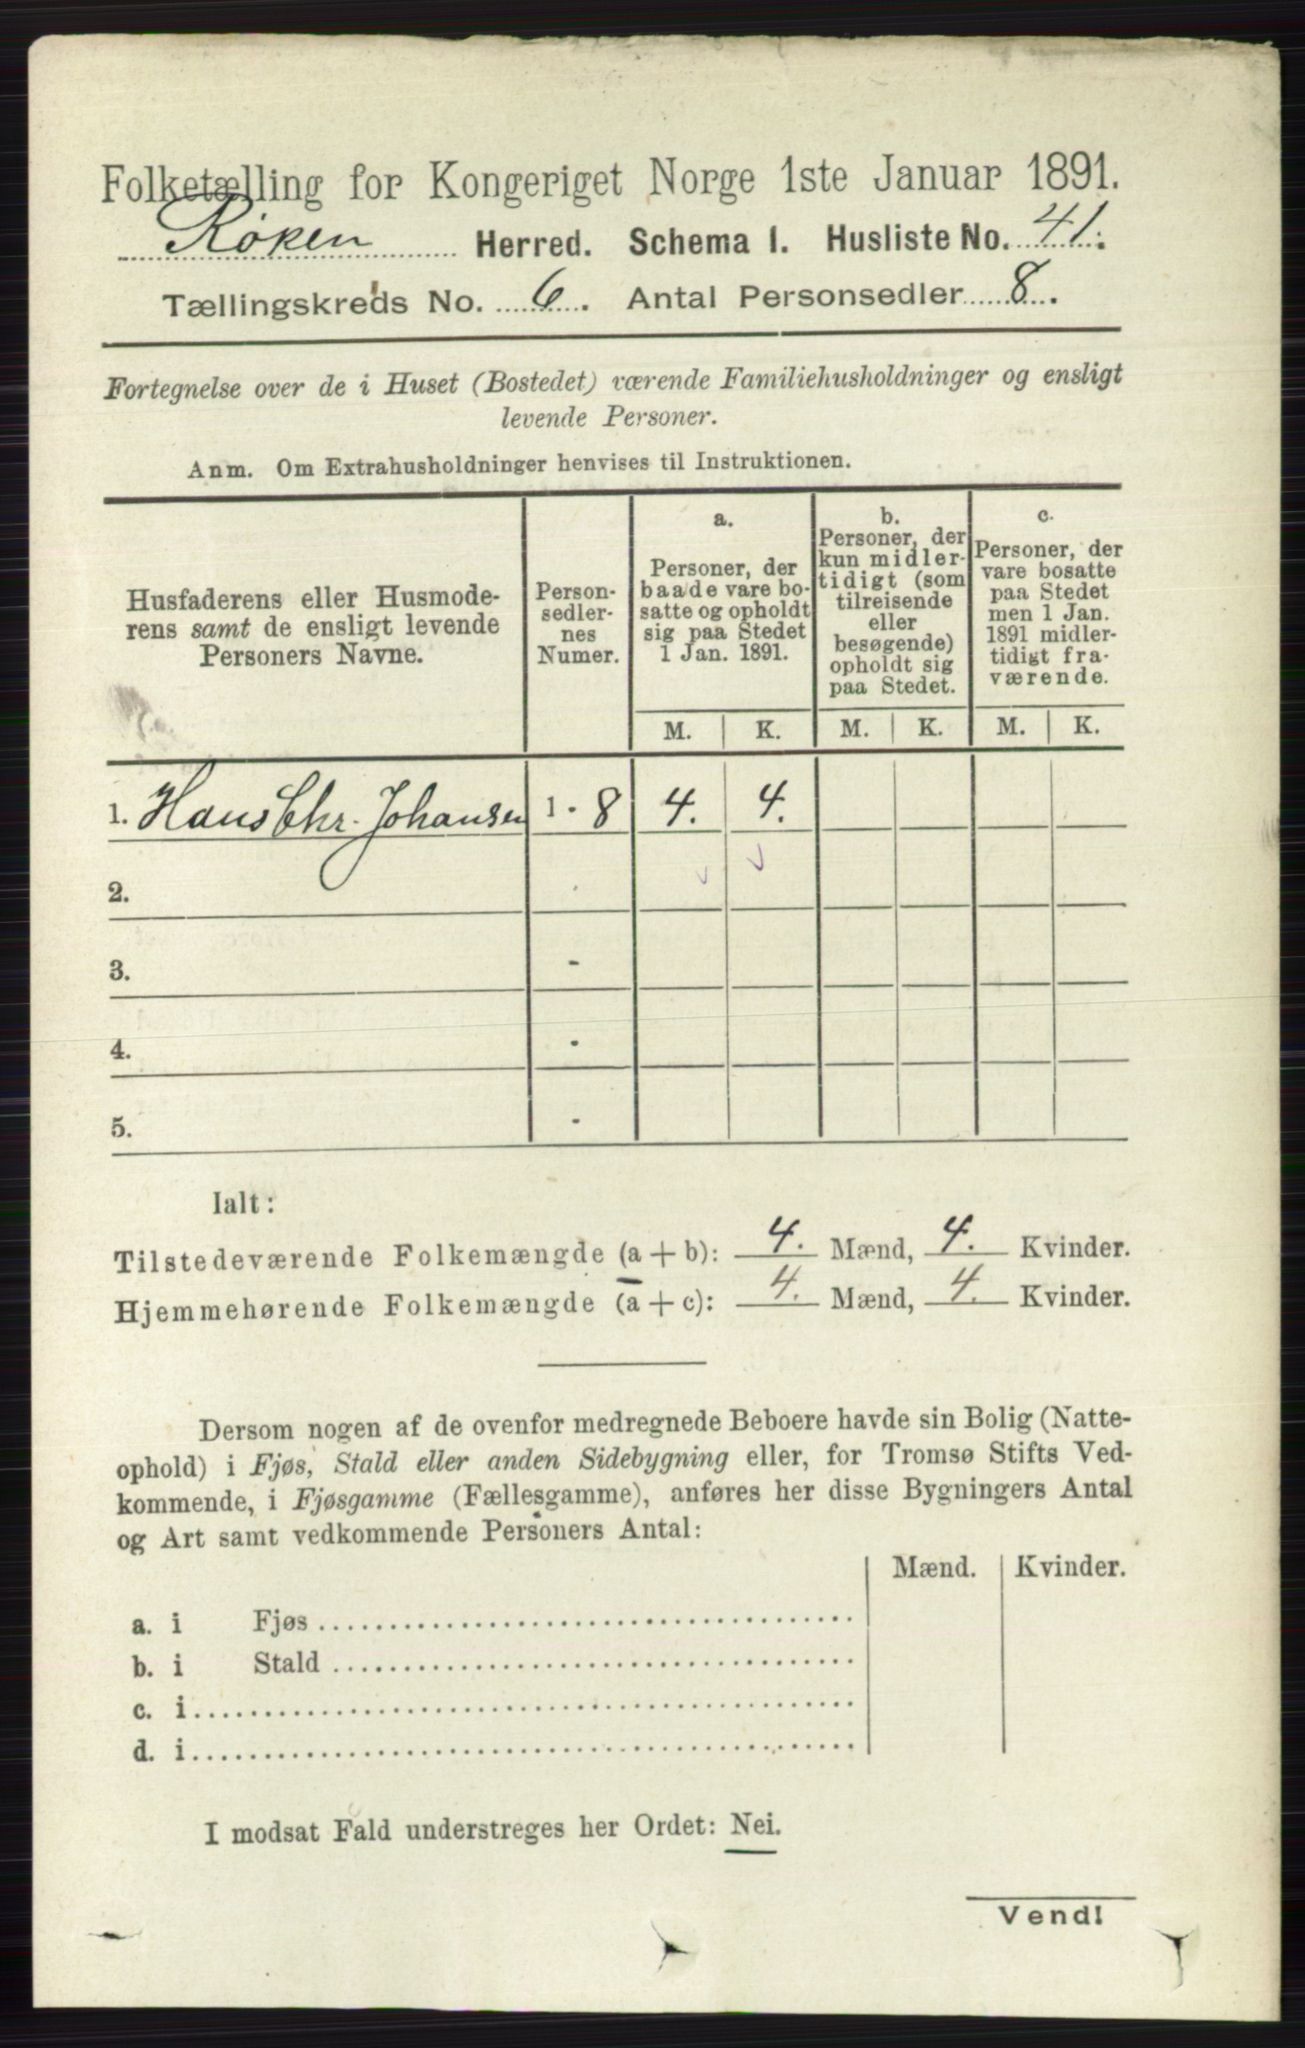 Folketælling for Kongeriget Norge 1ste Januar 1891.
Røken Herred. Schema 1. Husliste No. 41.
Tællingskreds No. 6. Antal Personsedler 8.
Fortegnelse over de i Huset (Bostedet) værende Familiehusholdninger og ensligt
levende Personer.
Anm. Om Extrahusholdninger henvises til Instruktionen.
Husfaderens eller Husmode-
rens samt de ensligt levende
Personers Navne.
Person-
sedler-
nes
Numer.
a.
Personer, der
baade vare bo-
satte og opholdt
sig paa Stedet
1 Jan. 1891.
b.
Personer, der
kun midler-
tidigt (som
tilreisende
eller
besøgende)
opholdt sig
paa Stedet.
c.
Personer, der
vare bosatte
paa Stedet
men 1 Jan.
1891 midler-
tidigt fra-
værende.
M. K. M. K. M. K.
1. Hans Chr. Johansen 1 - 8 4. 4.
2.
3. -
4. -
5. -
Ialt:
Tilstedeværende Folkemængde (a + b): 4. Mænd, 4. Kvinder.
Hjemmehørende Folkemængde (a + c): 4. Mænd, 4. Kvinder.
Dersom nogen af de ovenfor medregnede Beboere havde sin Bolig (Natte-
ophold) i Fjøs, Stald eller anden Sidebygning eller, for Tromsø Stifts Ved-
kommende, i Fjøsgamme (Fællesgamme), anføres her disse Bygningers Antal
og Art samt vedkommende Personers Antal:
Mænd. Kvinder.
a. i Fjøs
b. i Stald
c. i
d. i
I modsat Fald understreges her Ordet: Nei.
Vend!